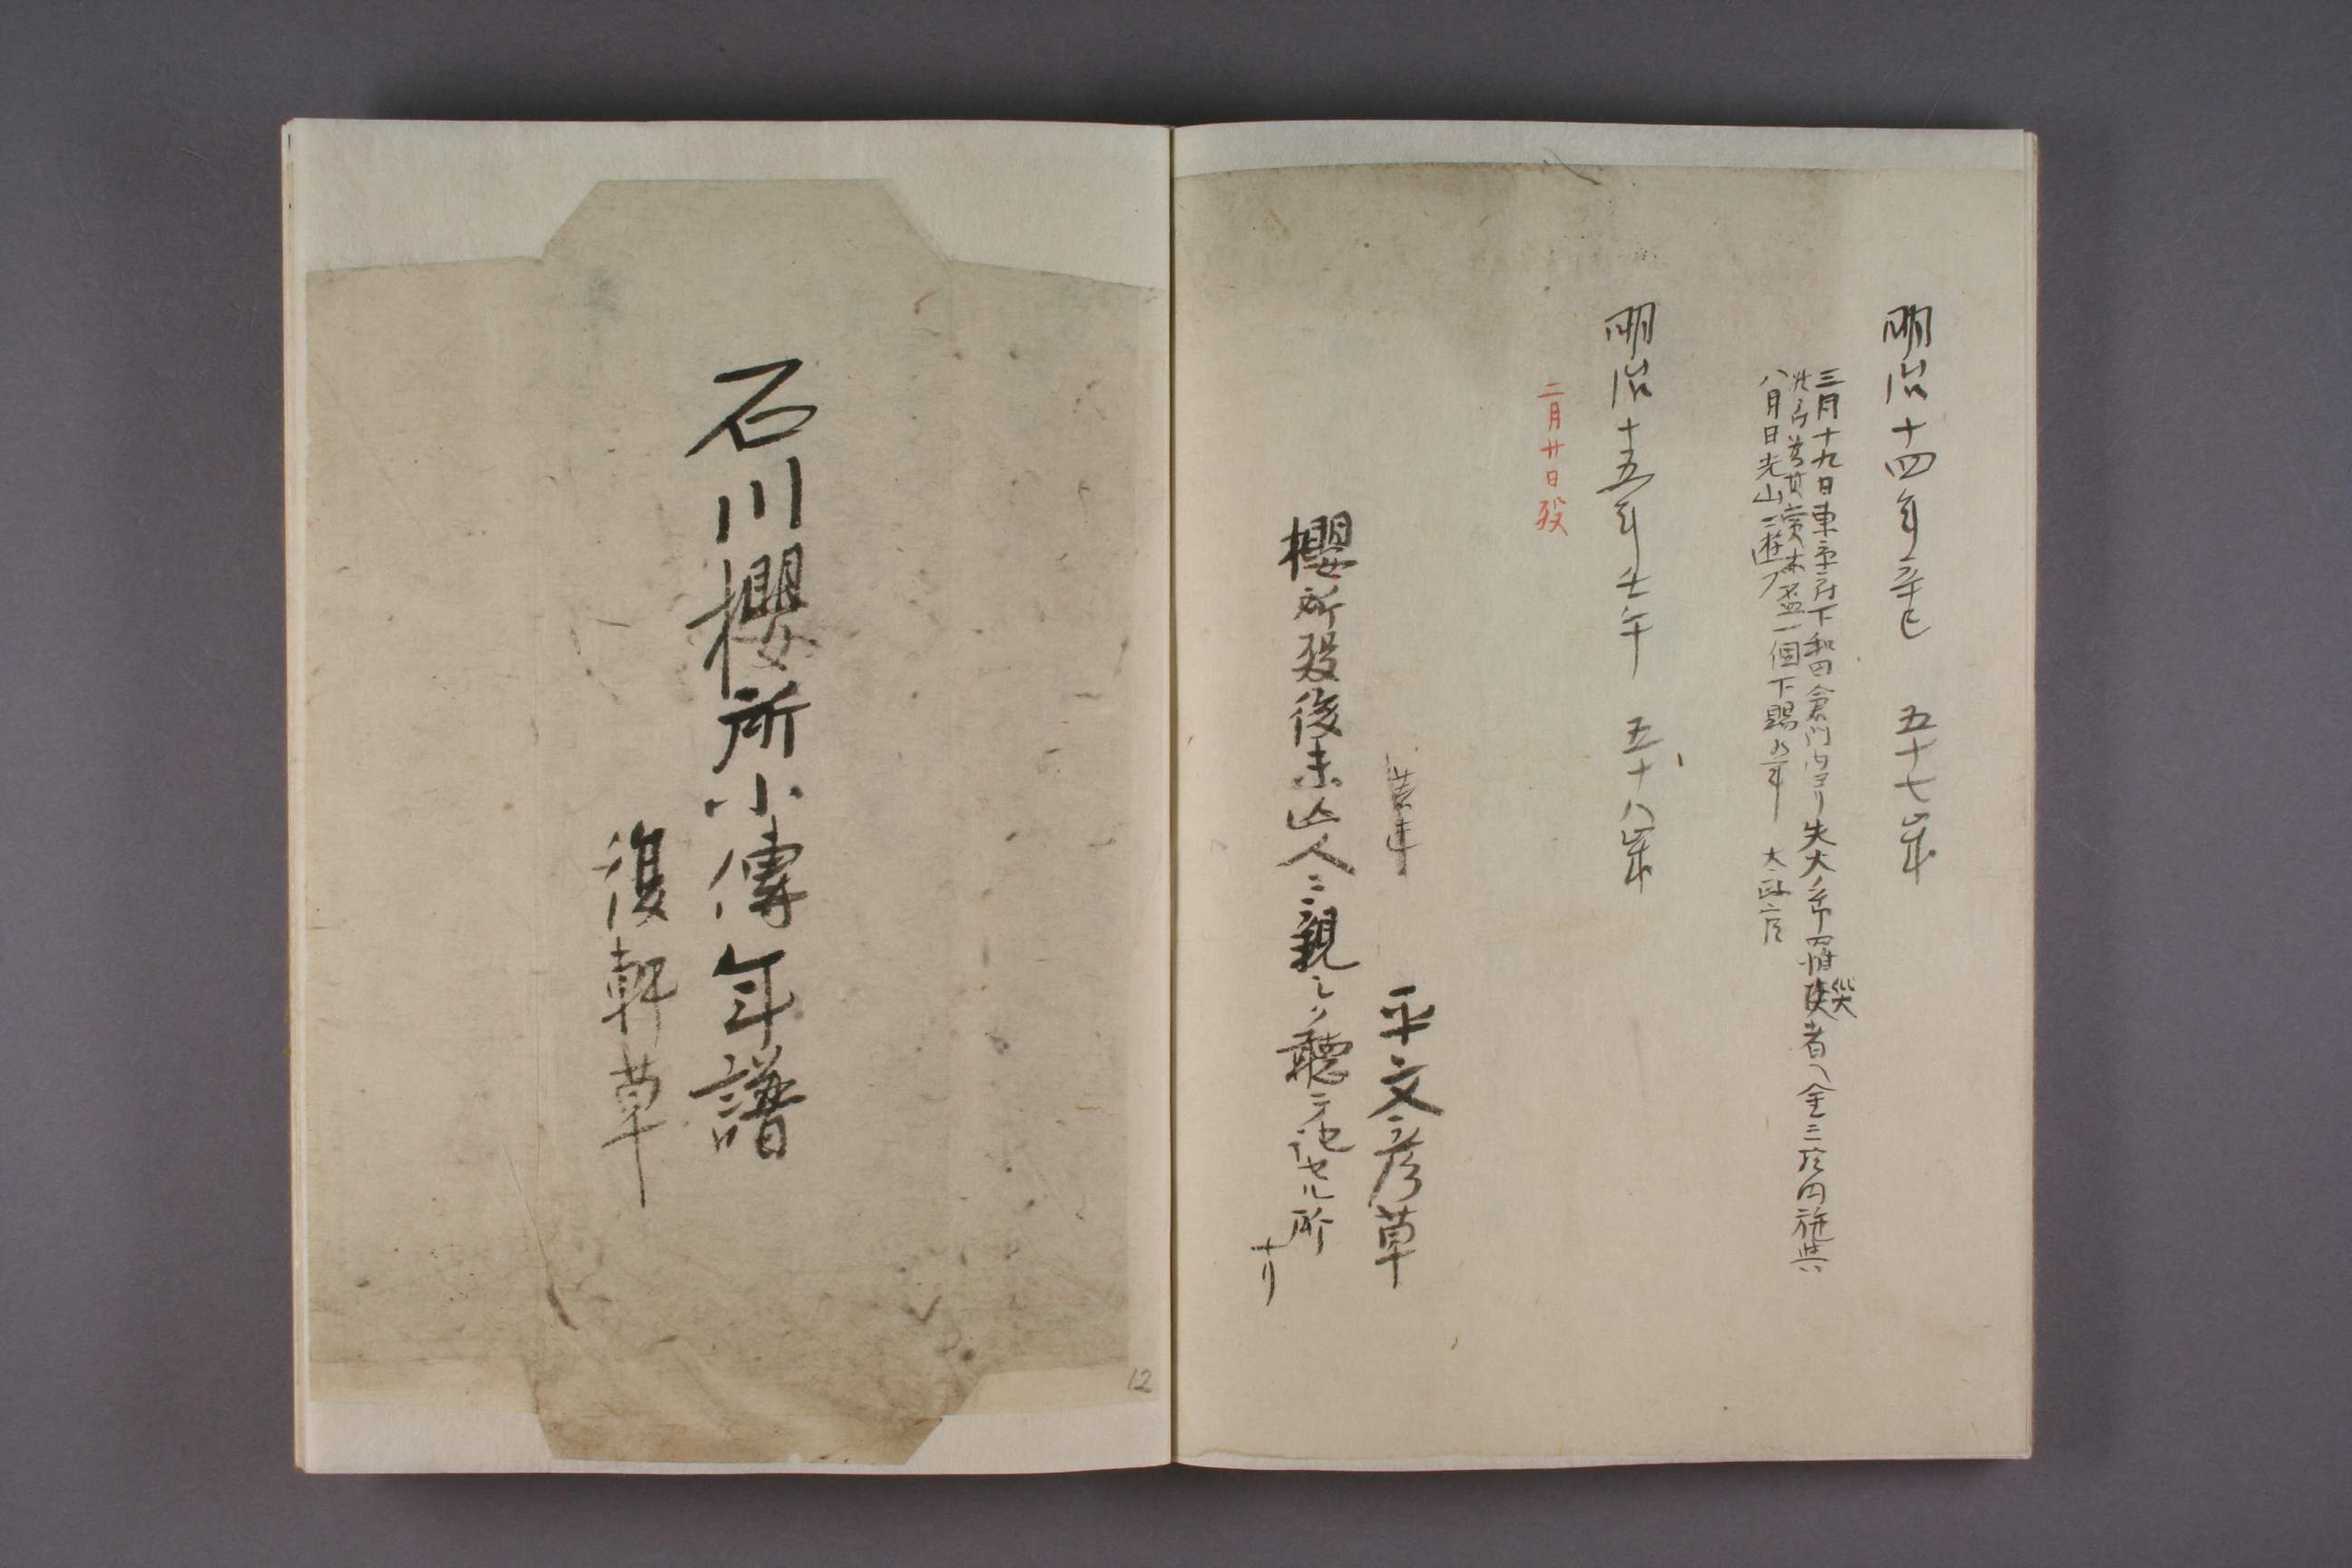 明治十四年辛巳　五十七歳
三月十九日東京府下和田倉門内ヨリ失火ノ節罹災者ヘ金三拾円施与
此為其賞木盃一個下賜候事　太政官
八月日光山ニ遊フ
明治十五年壬午　五十八歳
二月廿日歿
平文彦草
櫻所歿後未亡人ニ親シク聽テ記セル所
ナリ
石川櫻所小傳年譜
復軒草
12